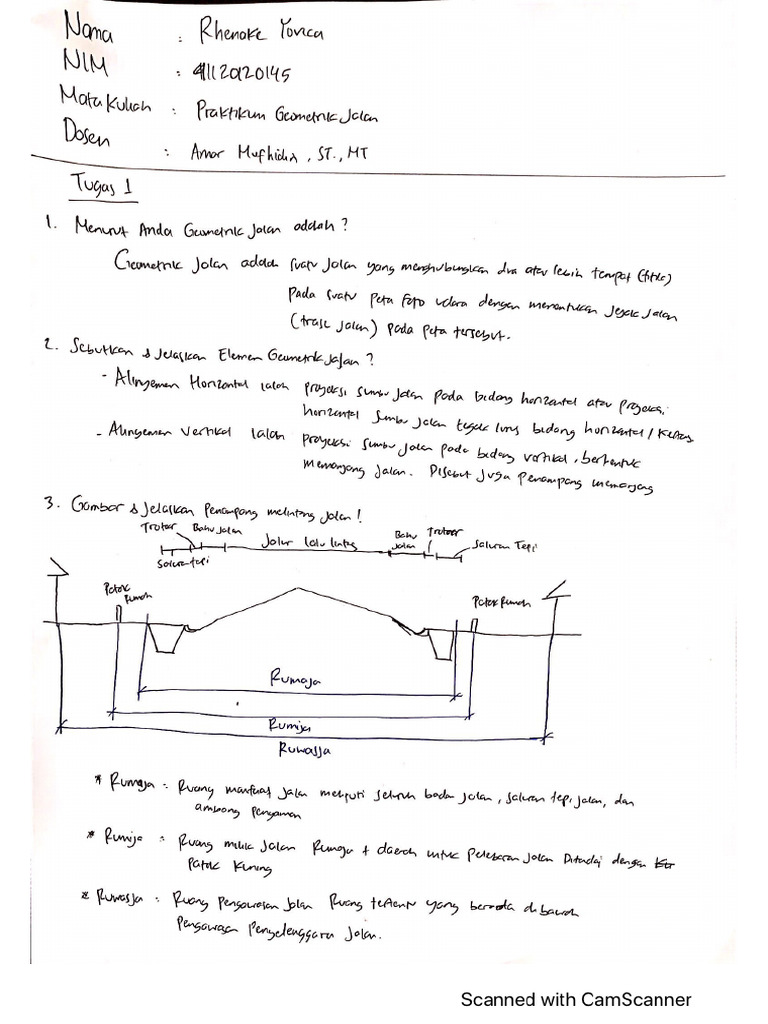 Nama : Rhenoke Yonca
NIM : 41120120145
Mata Kuliah : Praktikum Geometrik Jalan
Dosen : Amar Mufhidin, ST., MT
Tugas 1
1. Menurut Anda Geometrik Jalan adalah ?
Geometrik Jalan adalah suatu Jalan yang menghubungkan dua atau lebih tempat (titik)
Pada suatu Peta Foto udara dengan menentukan Jejak Jalan
(trase jalan) pada peta tersebut.
2. Sebutkan & Jelaskan Elemen Geometrik Jalan ?
- Alinyemen Horizontal ialah proyeksi sumbu jalan pada bidang horizontal atau proyeksi
horizontal sumbu jalan tegak lurus bidang horizontal / Kertas
- Alinyemen Vertikal ialah proyeksi sumbu jalan pada bidang vertikal, berbentuk
memanjang jalan. Disebut Juga Penampang memanjang
3. Gambar & Jelaskan Penampang melintang Jalan !
Trotoar Bahu Jalan Jalur lalu lintas Bahu Jalan Trotoar Saluran Tepi
Saluran tepi
Patok Rumah
Patok Rumah
Rumaja
Rumija
Ruwasja
* Rumaja : Ruang manfaat Jalan meliputi seluruh badan Jalan, saluran tepi jalan, dan
ambang pengaman
* Rumija : Ruang milik Jalan Rumaja + daerah untuk Pelebaran Jalan Ditandai dengan
Patok Kuning
* Ruwasja : Ruang Pengawasan Jalan Ruang tertentu yang berada dibawah
Pengawasan Penyelenggara Jalan.
Scanned with CamScanner